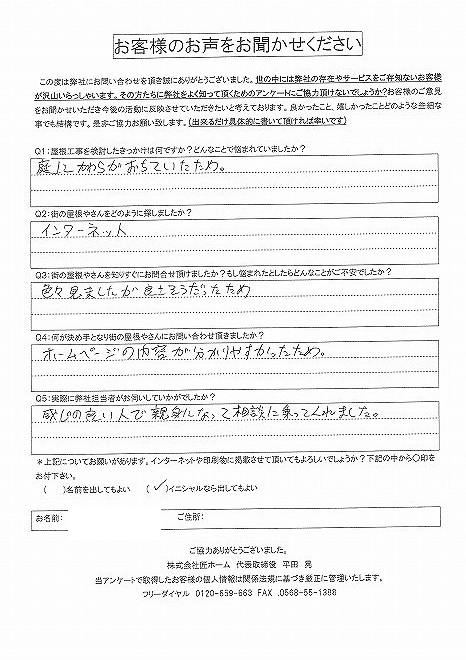 お客様のお声をお聞かせください
この度は弊社にお問い合わせを頂き誠にありがとうございました。世の中には弊社の存在やサービスをご存知ないお客様
が沢山いらっしゃいます。その方たちに弊社をよく知って頂くためのアンケートにご協力頂けないでしょうか?お客様のご意見
をお聞かせいただき今後の活動に反映させていただきたいと考えております。良かったこと、嬉しかったことどのような些細な
事でも結構です。是非ご協力お願い致します。(出来るだけ具体的に書いて頂ければ幸いです)
Q1:屋根工事を検討したきっかけは何ですか?どんなことで悩まれていましたか?
庭にかわらがおちていたため。
Q2:街の屋根やさんをどのように探しましたか?
インターネット
Q3:街の屋根やさんを知りすぐにお問合せ頂けましたか?もし悩まれたとしたらどんなことがご不安でしたか?
色々見ましたが良さそうだったため
Q4:何が決め手となり街の屋根やさんにお問い合わせ頂きましたか?
ホームページの内容が分かりやすかったため。
Q5:実際に弊社担当者がお伺いしていかがでしたか?
感じの良い人で親身になって相談に乗ってくれました。
*上記についてお願いがあります。インターネットや印刷物に掲載させて頂いてもよろしいでしょうか?下記の中から〇印を
お付下さい。
( )名前を出してもよい (✓)イニシャルなら出してもよい
お名前: ご住所:
ご協力ありがとうございました。
株式会社匠ホーム 代表取締役 平田 晃
当アンケートで取得したお客様の個人情報は関係法規に基づき厳正に管理いたします。
フリーダイヤル 0120-659-663 FAX .0568-55-1388